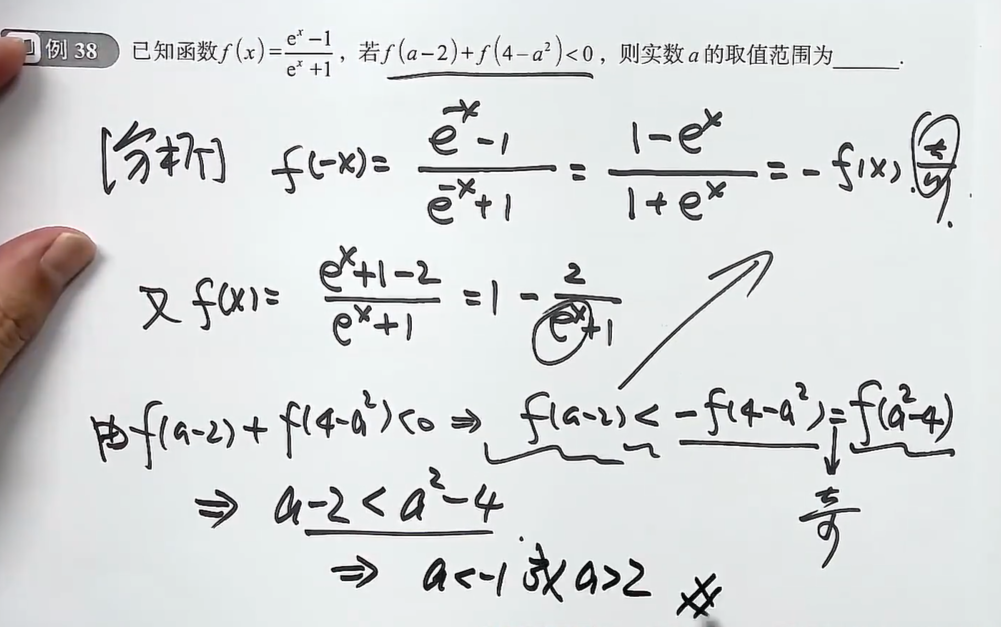 例 38 已知函数f(x)=\frac{e^x-1}{e^x+1}，若f(a-2)+f(4-a²)<0，则实数a的取值范围为____.
[分析] f(-x)= \frac{e^{-x}-1}{e^{-x}+1} = \frac{1-e^x}{1+e^x} = -f(x). 奇
又 f(x)= \frac{e^x+1-2}{e^x+1} = 1 - \frac{2}{e^x+1}
由f(a-2)+f(4-a²)<0 ⇒ f(a-2) < -f(4-a²)=f(a²-4)
奇
⇒ a-2<a²-4
⇒ a<-1 或 a>2